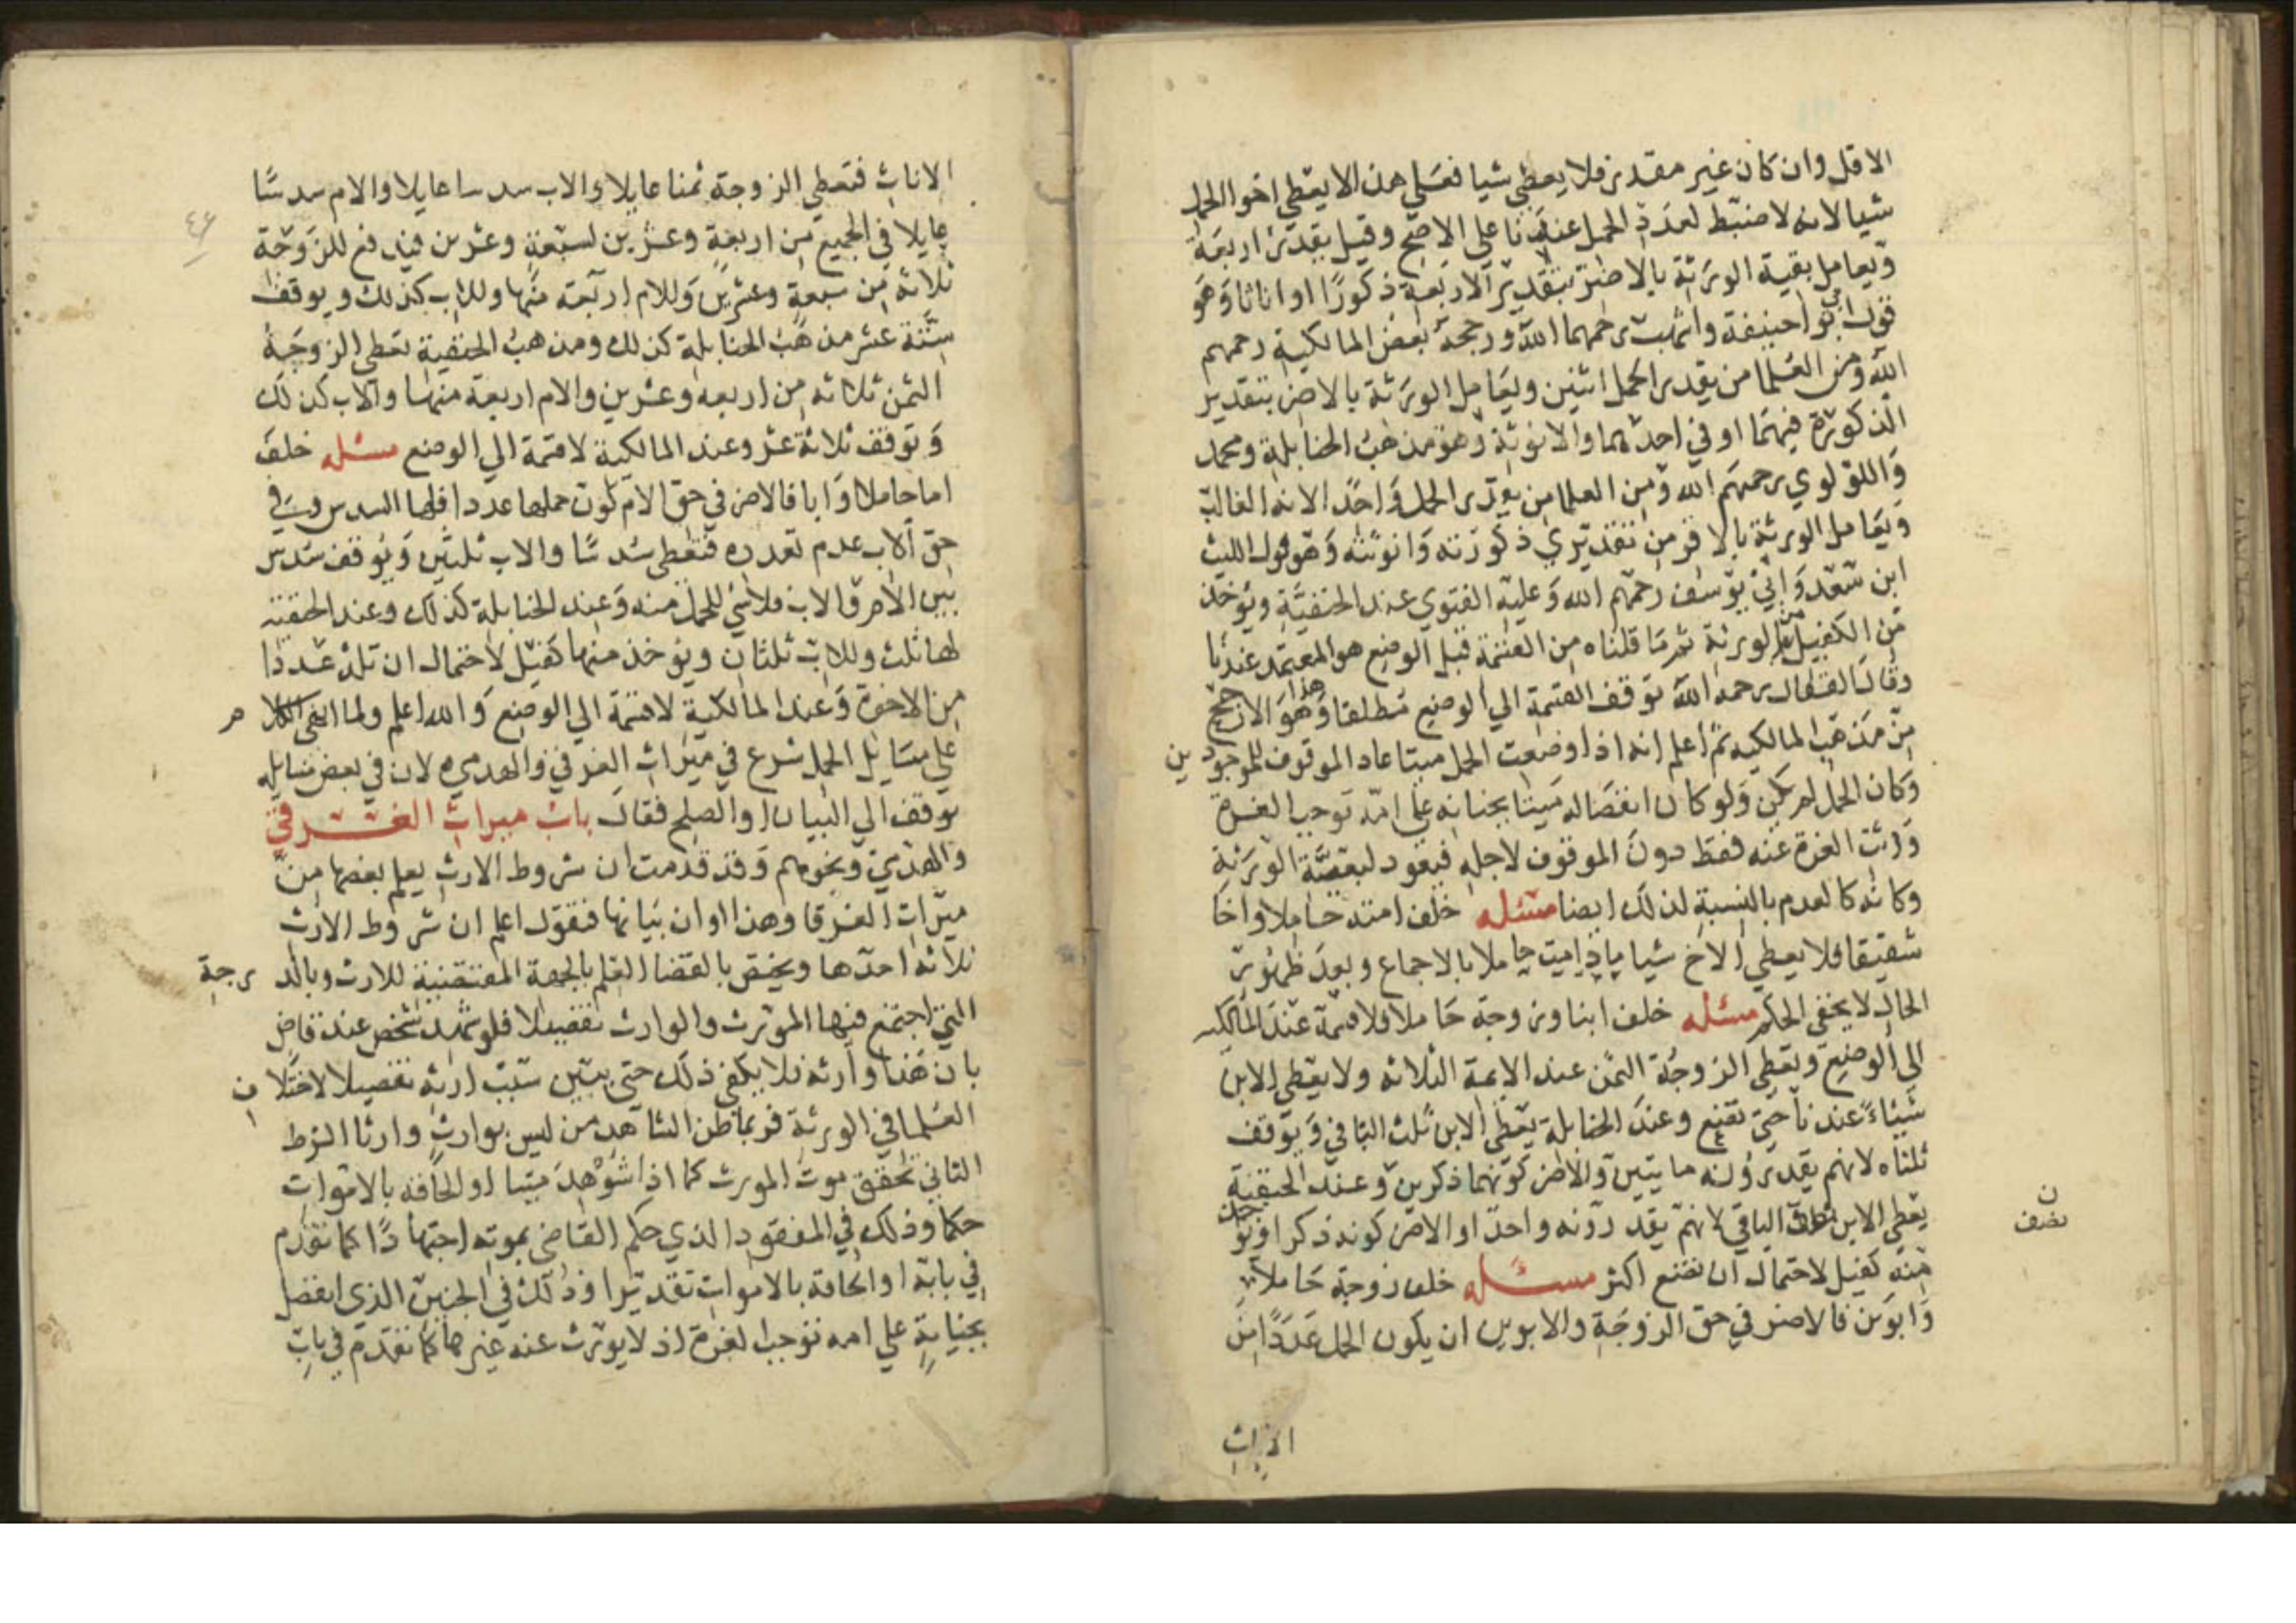 الاقل وان كان غير مقدر فلا يعطي شيا فعلي هذا لا يعطي اخو الحمل
شيا لانه لا ضبط لعدد الحمل عندنا علي الاصح وقيل يقدر اربعة
ويعامل بقية الورثة بالاضر بتقدير الاربعة ذكورا او اناثا وهو
قول ابي حنيفة واشهب رحمهما الله ورجحه بعض المالكية رحمهم
الله ومن العلما من يقدر الحمل اثنين ويعامل الورثة بالاضر بتقدير
الذكورة فيهما او في احدهما والانوثة وهو مذهب الحنابلة ومحمد
واللؤلوي رحمهم الله ومن العلما من يقدر الحمل واحدا لانه الغالب
ويعامل الورثة بالاضر من تقديري ذكورته وانوثته وهو قول الليث
ابن سعد وابي يوسف رحمهم الله وعليه الفتوي عند الحنفية ويؤخذ
من الكفيل من الورثة ثم ما قلناه من القسمة قبل الوضع هو المعتمد عندنا
وقال القفال رحمه الله توقف القسمة الي الوضع مطلقا وهذا هو الارجح
من مذهب المالكيه ثم اعلم انه اذا وضعت الحمل ميتا عاد الموقوف للموجودين
وكان الحمل لم يكن ولو كان انفصاله ميتا بجنايه علي امه توجب الغرة
ورثت الغرة عنه فقط دون الموقوف لاجله فيعود لبقية الورثة
وكانه كالعدم بالنسبة لذلك ايضا مسئله خلف امته حاملا واخا
شقيقا فلا يعطي الاخ شيا مادامت حاملا بالاجماع وبعد ظهور
الحال لا يخفي الحكم مسئله خلف ابنا وزوجة حاملا فلا قسمة عند المالكيه
الي الوضع وتعطي الزوجة الثمن عند الايمة الثلاثه ولا يعطي الابن
شيئا عندنا حتي تضع وعند الحنابلة يعطي الابن ثلث الباقي ويوقف
ثلثاه لانهم يقدرونه ما يتبين والاضر كونهما ذكرين وعند الحنفية
يعطي الابن الباقي لانهم يقدرونه واحدا والاضر كونه ذكرا ويؤخذ
نصف
منه كفيل لاحتمال ان تضع اكثر مسئله خلف زوجة حاملا
وابوين فالاضر في حق الزوجة والابوين ان يكون الحمل عددا من
الاناث
الاناث فتعطي الزوجة ثمنا عايلا والاب سدسا عايلا والام سدسا
عايلا في الجميع من اربعة وعشرين لسبعة وعشرين فيدفع للزوجة
ثلاثة من سبعة وعشرين وللام اربعة منها وللاب كذلك ويوقف
ستة عشر مذهب الحنابلة كذلك ومذهب الحنفية تعطي الزوجة
الثمن ثلاثه من اربعه وعشرين والام اربعة منها والاب كذلك
وتوقف ثلاثة عشر وعند المالكية لا قسمة الي الوضع مسئله خلف
اما حاملا وابا فالاضر في حق الام كون حملها عددا فلها السدس وفي
حق الاب عدم تعدده فتعطي سدسا والاب ثلثين ويوقف سدس
بين الام والاب فلا شئ للحمل منه وعند الحنابلة كذلك وعند الحنفيه
لها ثلث وللاب ثلثان ويؤخذ منها كفيل لاحتمال ان تلد عددا
من الاخوة وعند المالكية لا قسمة الي الوضع والله اعلم ولما انهي الكلام
علي مسايل الحمل شرع في ميراث الغرقي والهدمي لان في بعض مسايله
توقف الي البيان او الصلح فقال باب ميراث الغرقي
والهدمي ونحوهم وقد قدمت ان شروط الارث يعلم بعضها من
ميراث الغرقا وهذا اوان بيانها فنقول اعلم ان شروط الارث
ثلاثه احدها ويختص بالقضا العلم بالجهة المقتضية للارث وبالدرجة
التي اجتمع فيها المورث والوارث تفصيلا فلو شهد شخص عند قاض
بان هذا وارثه فلا يكفي ذلك حتي يبين سبب ارثه تفصيلا لاختلاف
العلما في الورثة فربما ظن الشاهد من ليس بوارث وارثا الشرط
الثاني تحقق موت المورث كما اذا شوهد ميتا او الحاقه بالاموات
حكما وذلك في المفقود الذي حكم القاضي بموته اجتهادا كما تقدم
في بابه او الحاقه بالاموات تقديرا وذلك في الجنين الذي انفصل
بجناية علي امه توجب الغرة اذ لا يورث عنه غيرها كما تقدم في باب